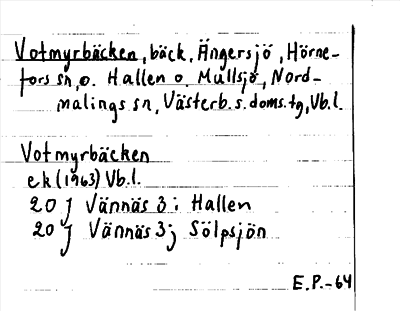 Votmyrbäcken, bäck, Ängersjö, Hörne-
fors sn, o. Hallen o. Mullsjö, Nord-
malings sn, Västerb. s. doms. tg, Vb.l.
Votmyrbäcken
ek (1963) Vb.l.
20 J Vännäs 3 i Hallen
20 J Vännäs 3 j Sölpsjön
E.P.-64